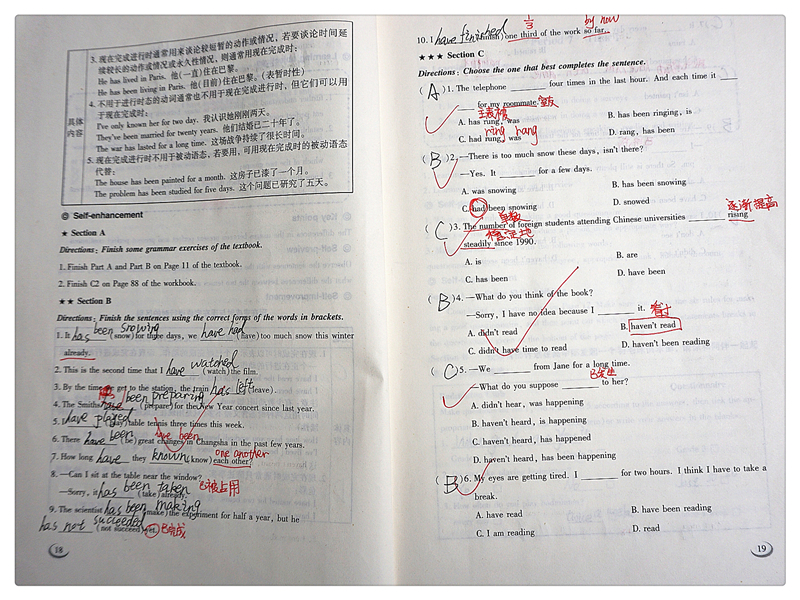 具体内容
3. 现在完成进行时通常用来谈论较短暂的动作或情况，若要谈论时间延
续较长的动作或情况或永久性情况，则通常用现在完成时：
He has lived in Paris. 他(一直)住在巴黎。
He has been living in Paris. 他(目前)住在巴黎。(表暂时性)
4. 不用于进行时态的动词通常也不用于现在完成进行时，但它们可以用
于现在完成时：
I've only known her for two day. 我认识她刚刚两天。
They've been married for twenty years. 他们结婚已二十年了。
The war has lasted for a long time. 这场战争持续了很长时间。
5. 现在完成进行时不用于被动语态，若要用，可用现在完成时的被动语态
代替：
The house has been painted for a month. 这房子已漆了一个月。
The problem has been studied for five days. 这个问题已研究了五天。
Self-enhancement
★ Section A
Directions: Finish some grammar exercises of the textbook.
1. Finish Part A and Part B on Page 11 of the textbook.
2. Finish C2 on Page 88 of the workbook.
★★ Section B
Directions: Finish the sentences using the correct forms of the words in brackets.
1. It has been snowing (snow) for three days, we have had (have) too much snow this winter
already.
2. This is the second time that I have watched (watch) the film.
3. By the time we get to the station, the train has left (leave).
4. The Smiths have been preparing (prepare) for the New Year concert since last year.
5. I have played (play) table tennis three times this week.
6. There have been (be) great changes in Changsha in the past few years.
have been
7. How long have they known (know) each other?
one another
8. —Can I sit at the table near the window?
—Sorry, it has been taken (take) already.
已被占用
9. The scientist has been making (make) the experiment for half a year, but he
has not succeeded (not succeed) yet. 已完成
18
10. I have finished (finish) one third of the work so far.
1/3
by now
★★★ Section C
Directions: Choose the one that best completes the sentence.
(A) 1. The telephone ____ four times in the last hour. And each time it ____
____ for my roommate.
室友
A. has rung, was
B. has been ringing, is
C. had rung, was
D. rang, has been
ring rang
(B) 2. —There is too much snow these days, isn't there?
—Yes. It ____ for a few days.
A. was snowing
B. has been snowing
C. had been snowing
D. snowed
(C) 3. The number of foreign students attending Chinese universities ____ rising
steadily since 1990.
逐渐提高
单数
稳定地
A. is
B. are
C. has been
D. have been
(B) 4. —What do you think of the book?
—Sorry, I have no idea because I ____ it.
A. didn't read
B. haven't read
C. didn't have time to read
D. haven't been reading
(C) 5. —We ____ from Jane for a long time.
—What do you suppose ____ to her?
A. didn't hear, was happening
B. haven't heard, is happening
C. haven't heard, has happened
D. haven't heard, has been happening
(B) 6. My eyes are getting tired. I ____ for two hours. I think I have to take a
break.
A. have read
B. have been reading
C. I am reading
D. read
19